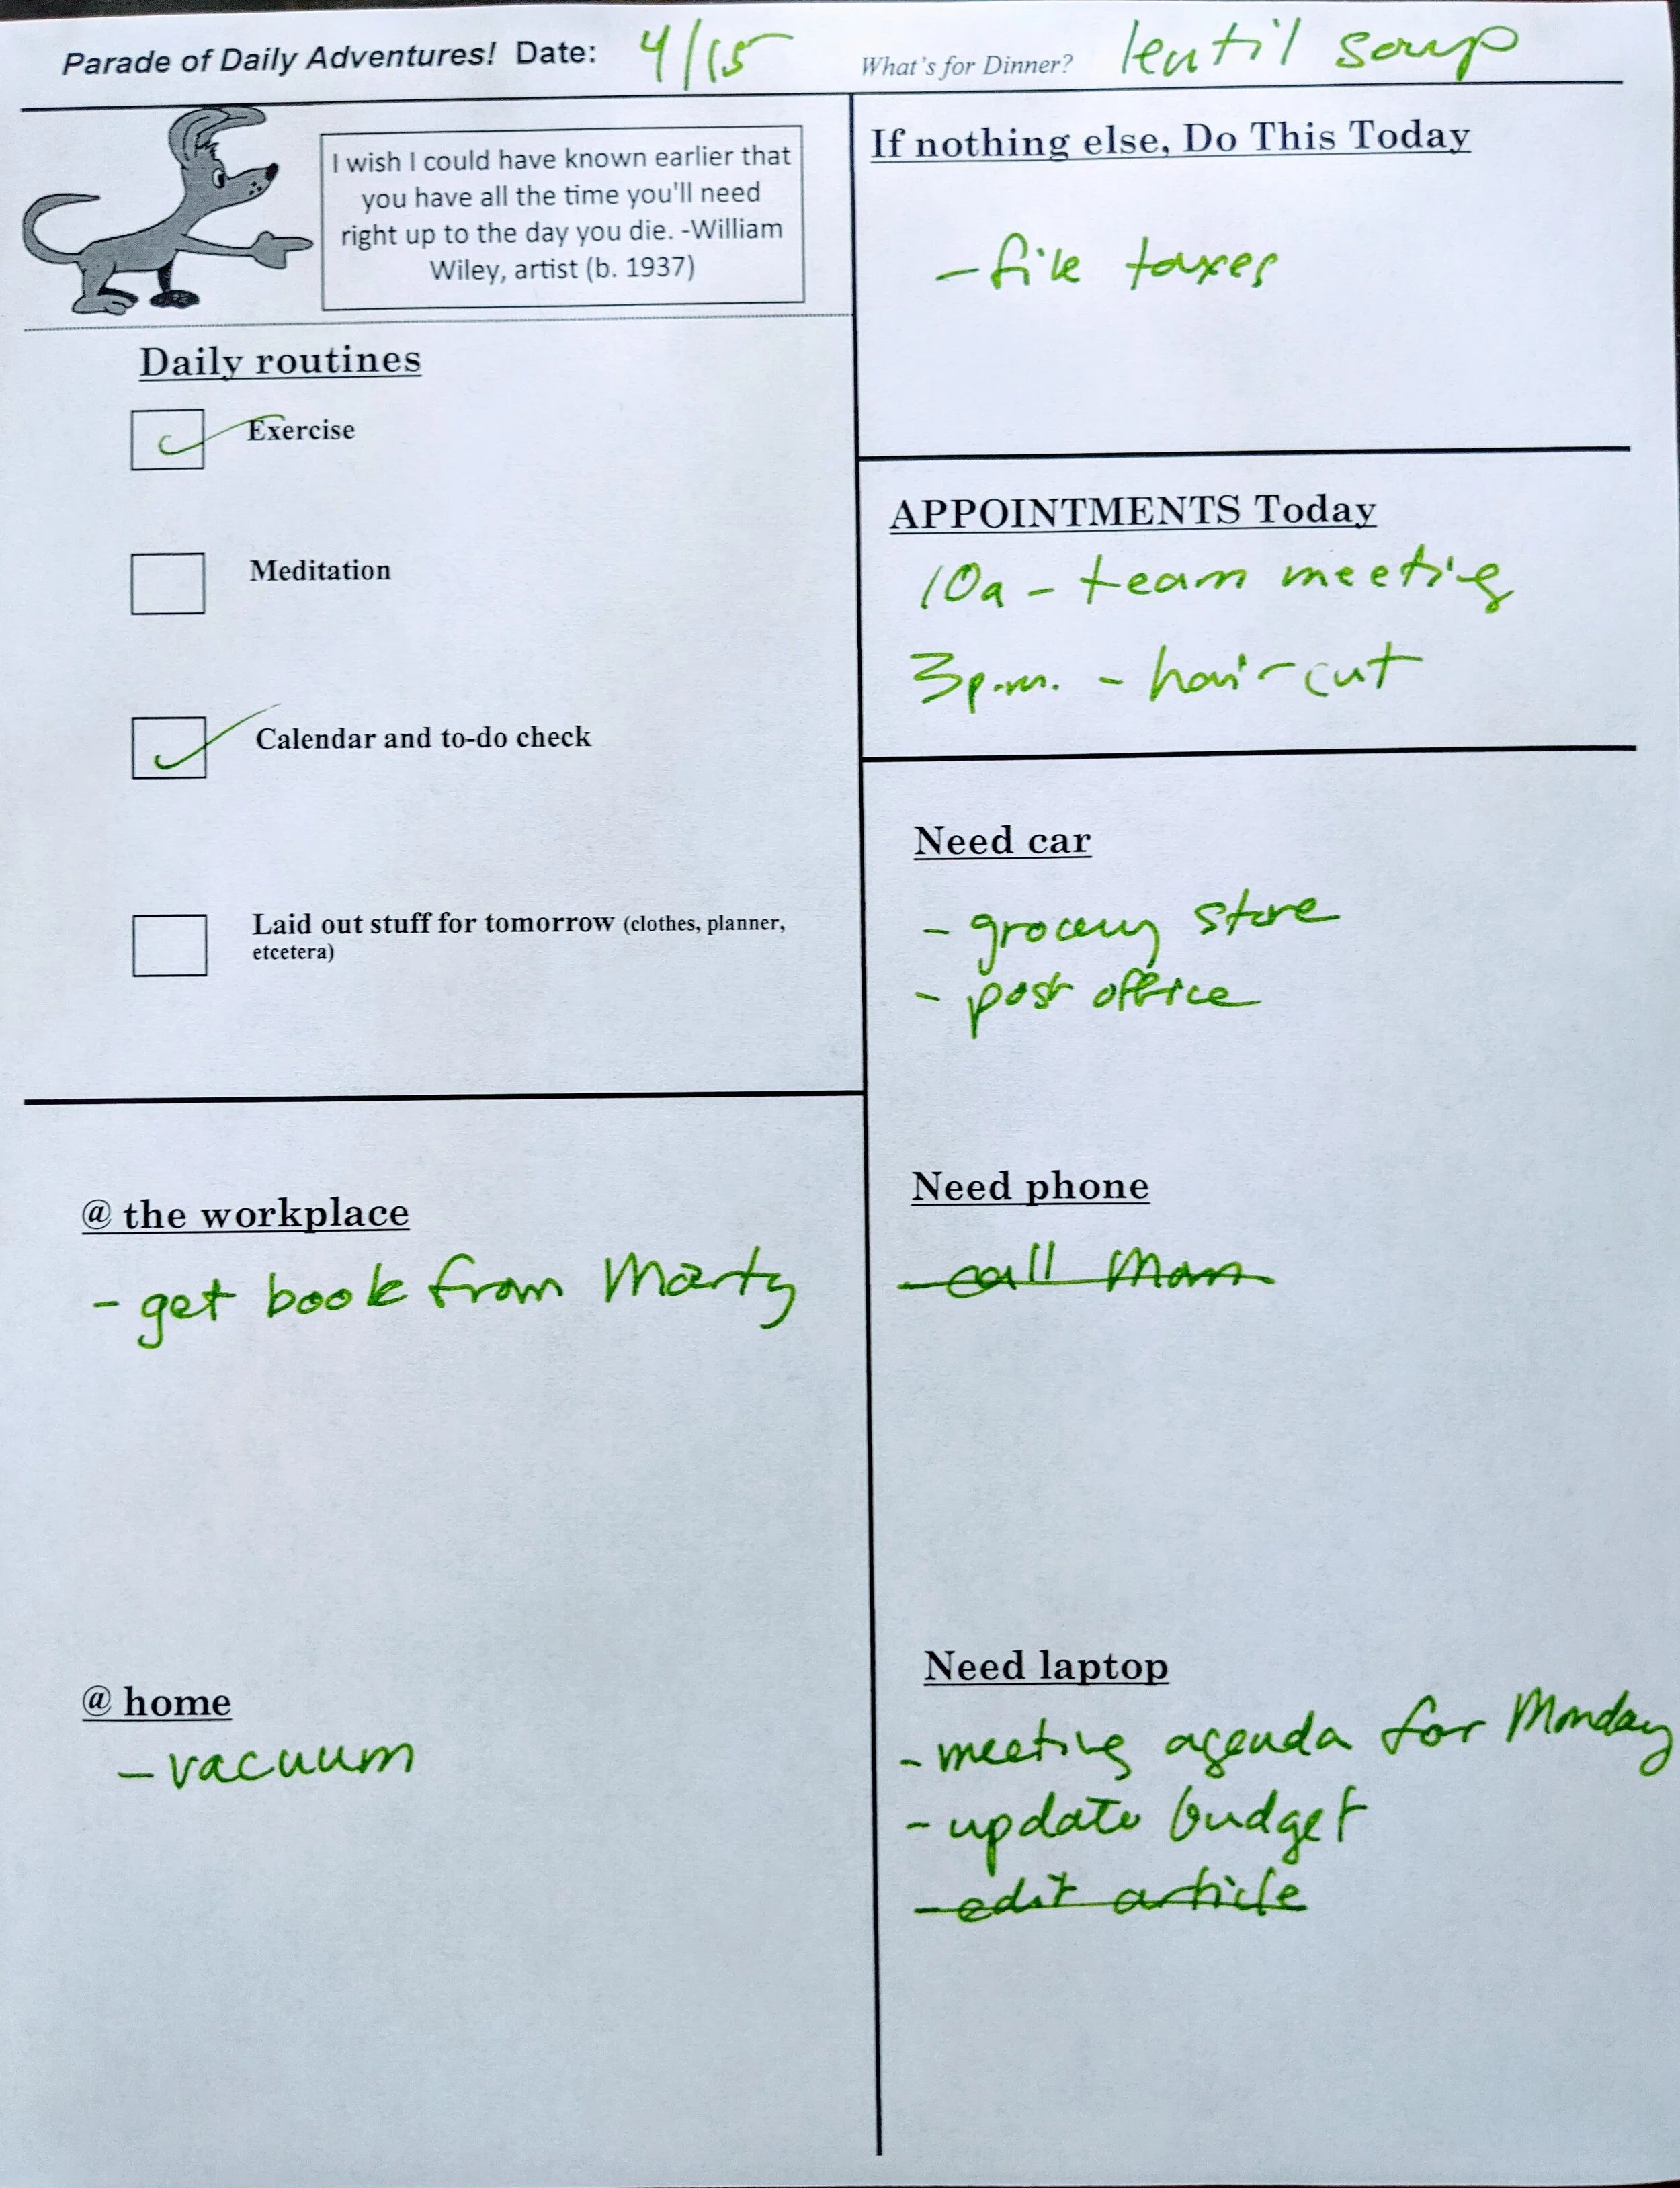 Parade of Daily Adventures! Date: 4/15 What's for Dinner? lentil soup
I wish I could have known earlier that
you have all the time you'll need
right up to the day you die. -William
Wiley, artist (b. 1937)
Daily routines
Exercise
Meditation
Calendar and to-do check
Laid out stuff for tomorrow (clothes, planner,
etcetera)
@ the workplace
- get book from Marty
@ home
- vacuum
If nothing else, Do This Today
- file taxes
APPOINTMENTS Today
10a - team meeting
3p.m. - haircut
Need car
- grocery store
- post office
Need phone
- call Mom
Need laptop
- meeting agenda for Monday
- update budget
- edit article